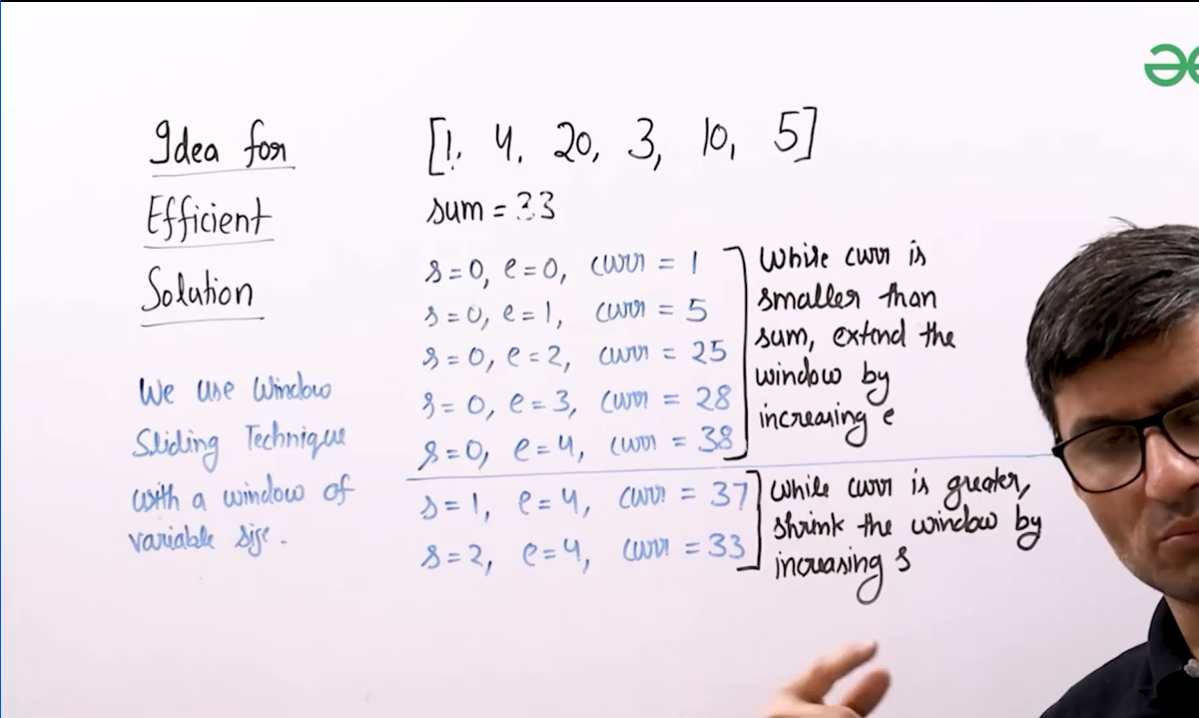 Idea for
Efficient
Solution
We use Window
Sliding Technique
with a window of
variable size.
[1, 4, 20, 3, 10, 5]
sum = 33
s=0, e=0, curr = 1
s=0, e=1, curr = 5
s=0, e=2, curr = 25
s=0, e=3, curr = 28
s=0, e=4, curr = 38
While curr is
smaller than
sum, extend the
window by
increasing e
s=1, e=4, curr = 37
s=2, e=4, curr = 33
While curr is greater,
shrink the window by
increasing s